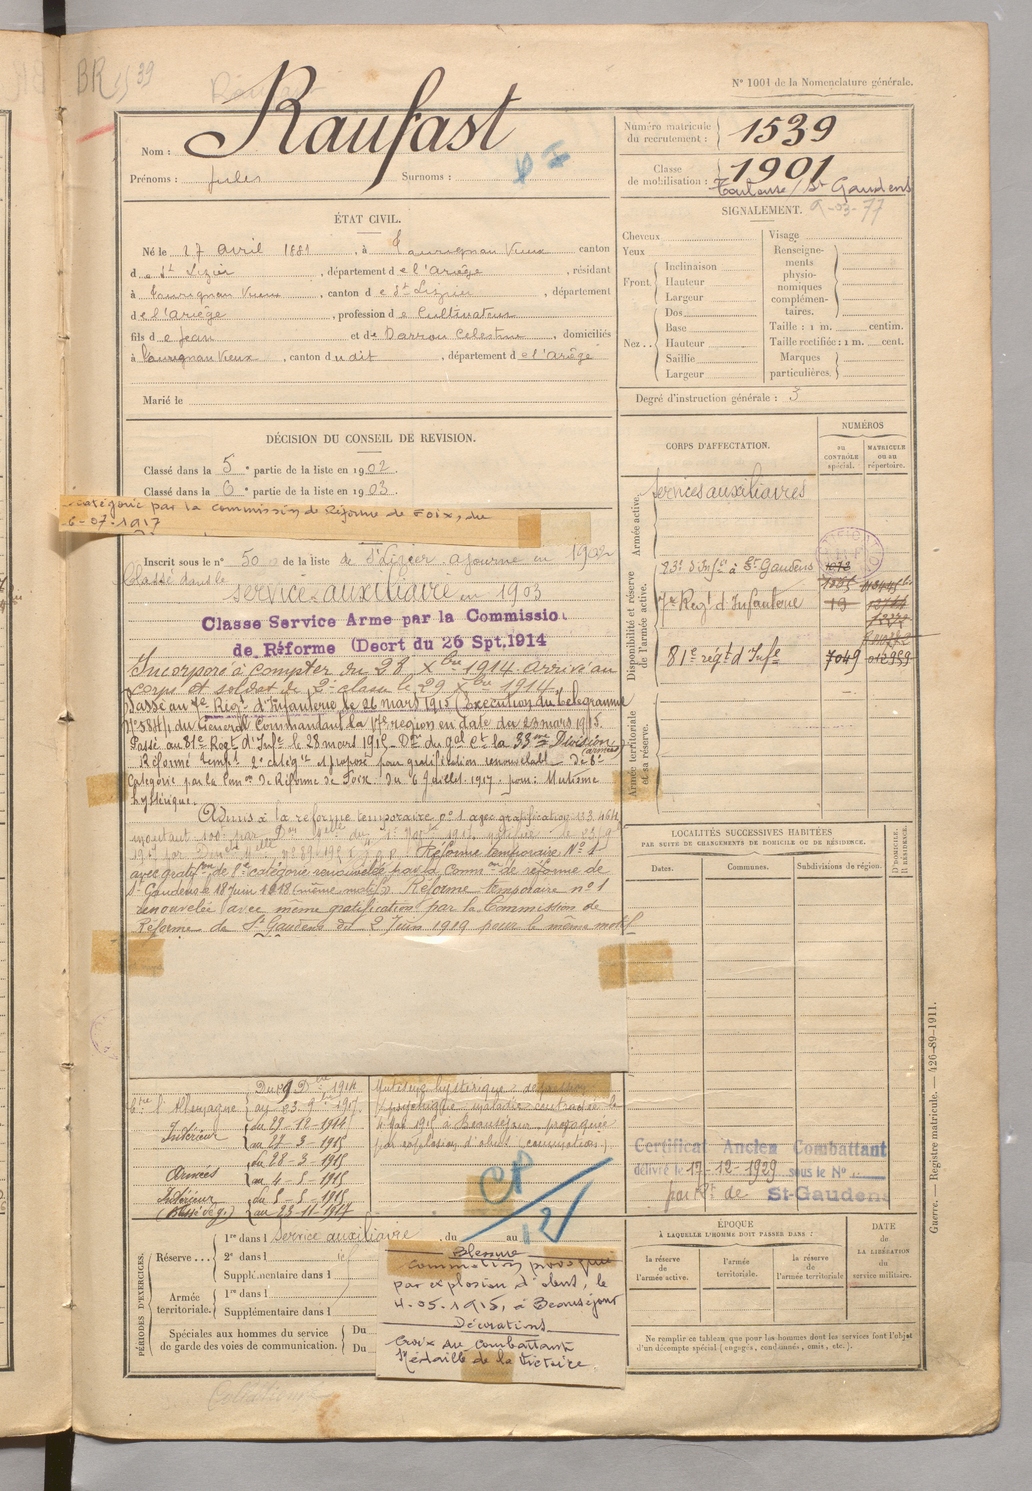 BR
39
N° 1001 de la Nomenclature générale.
Nom : Raufast
Prénoms : Jules Surnoms :
Numéro matricule du recrutement : 1539
Classe de mobilisation : 1901
Toulouse / St Gaudens
ÉTAT CIVIL.
Né le 27 avril 1881, à Taurignan Vieux canton
de St Lizier, département de l'Ariège, résidant
à Taurignan Vieux, canton de St Lizier, département
de l'Ariège, profession de Cultivateur
fils de Jean et de Darrou Celestine, domiciliés
à Taurignan Vieux, canton du dit, département de l'Ariège
Marié le
SIGNALEMENT.
Cheveux
Yeux
Front Inclinaison
Hauteur
Largeur
Nez.. Dos
Base
Hauteur
Saillie
Largeur
Visage
Renseigne-
ments
physio-
nomiques
complémen-
taires.
Taille : 1 m. centim.
Taille rectifiée : 1 m. cent.
Marques
particulières.
Degré d'instruction générale : 3
DÉCISION DU CONSEIL DE REVISION.
Classé dans la 5e partie de la liste en 1902.
Classé dans la 6e partie de la liste en 1903.
catégorie par la commission de Réforme de Foix, du
6-07-1917
Inscrit sous le n° 50 de la liste de St Lizier ajourné en 1902
Classé dans le
service auxiliaire en 1903
Classe Service Arme par la Commissio
de Réforme (Decrt du 26 Spt. 1914
Incorporé à compter du 28 Xbre 1914 arrivé au
corps et soldat de 2e classe le 29 Xbre 1914
Passé au 7e Régt d'Infanterie le 26 mars 1915 (Exécution du Télégramme
du Général Commandant la 17e région en date du 23 mars 1915.
Passé au 81e Regt d'Infie le 28 mars 1915 Don du gal Ct la 33me Division
(armées)
Réformé tempre 2e catégie et proposé pour gratification renouvelable de 8e
Catégorie par la Comon de Réforme de Foix du 6 Juillet 1917 pour: Mutisme
hystérique.
Admis à la réforme temporaire n° 1 avec gratification
Réforme temporaire N° 1
avec gratifon de 8e catégorie renouvelée par la Common de réforme de
St Gaudens le 18 Juin 1918 (même motif). Réforme temporaire n° 1
renouvelée avec même gratification par la Commission de
Réforme de St Gaudens du 2 Juin 1919 pour le même motif
CORPS D'AFFECTATION.
NUMÉROS
au CONTRÔLE spécial.
MATRICULE ou au répertoire.
Armée active.
Services auxiliaires
Disponibilité et réserve de l'armée active.
83e d'Infie à St Gaudens
7e Régt d'Infanterie
81e régt d'Infie 7049 012959
Armée territoriale et sa réserve.
LOCALITÉS SUCCESSIVES HABITÉES
PAR SUITE DE CHANGEMENTS DE DOMICILE OU DE RÉSIDENCE.
Dates. Communes. Subdivisions de région. D. DOMICILE. R. RÉSIDENCE.
Ctre l'Allemagne
Intérieur du 29-12-1914
au 27-3-1915
Armées du 28-3-1915
au 4-5-1915
Intérieur du 5-5-1915
(Blessé de g.) au 23-11-1917
Certificat Ancien Combattant
délivré le 17-12-1929 sous le N°
par Pt de St-Gaudens
CP/12
PÉRIODES D'EXERCICES.
Réserve... 1re dans l service auxiliaire, du au
2e dans l
Supplémentaire dans l
Armée territoriale. 1re dans l
Supplémentaire dans l
Spéciales aux hommes du service
de garde des voies de communication. Du
Du
Blessure
Commotion provoquée
par explosion d'obus, le
4-05-1915, à Beauséjour
Décorations
Croix du combattant
Médaille de la Victoire.
ÉPOQUE
À LAQUELLE L'HOMME DOIT PASSER DANS :
la réserve de l'armée active.
l'armée territoriale.
la réserve de l'armée territoriale
DATE de LA LIBÉRATION du service militaire.
Ne remplir ce tableau que pour les hommes dont les services font l'objet
d'un décompte spécial (engagés, condamnés, omis, etc.).
Guerre. — Registre matricule. — 426-89-1911.